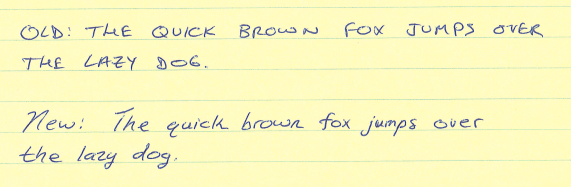 OLD: THE QUICK BROWN FOX JUMPS OVER
THE LAZY DOG.
New: The quick brown fox jumps over
the lazy dog.